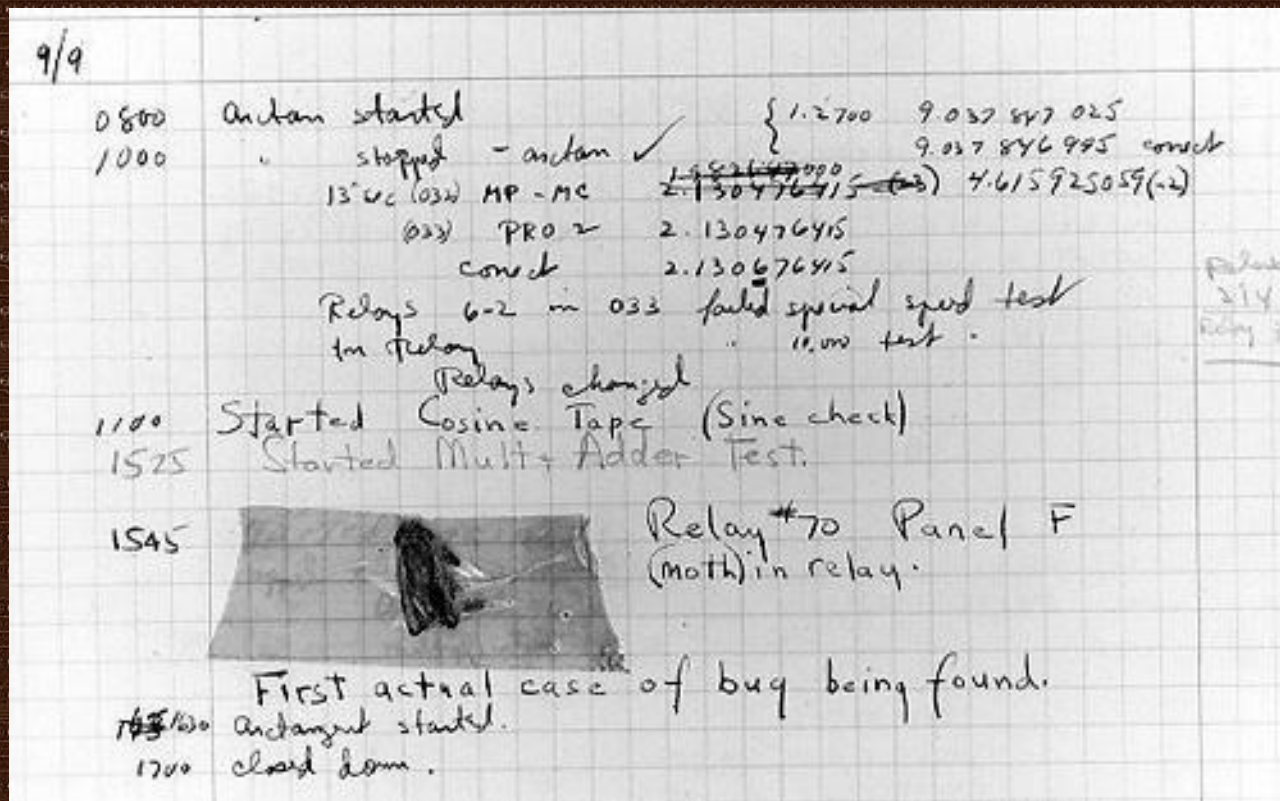 9/9
0800 arctan started { 1.2700 9.037 847 025
1000 " stopped - arctan ✓ 9.037 846 995 correct
13"uc (032) MP - MC 2.130476415 (-3) 4.615925059(-2)
(033) PRO 2 2.130476415
correct 2.130676415
Relays 6-2 in 033 failed special speed test
In Relay " 10,000 test.
Relays changed
1100 Started Cosine Tape (Sine check)
1525 Started Mult + Adder Test.
1545 Relay #70 Panel F
(moth) in relay.
First actual case of bug being found.
1630 arctangent started.
1700 closed down.